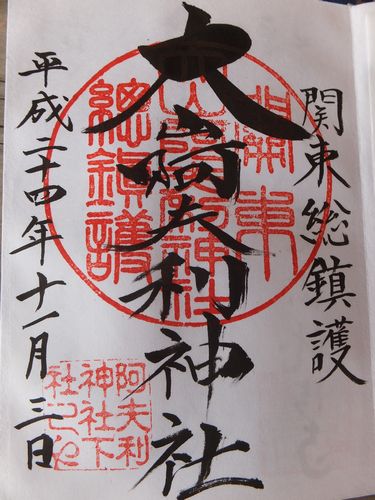 関東総鎮護
大山阿夫利神社
平成二十四年十一月三日
關東
大山阿夫利神社
總鎮護
阿夫利
神社下
社之印